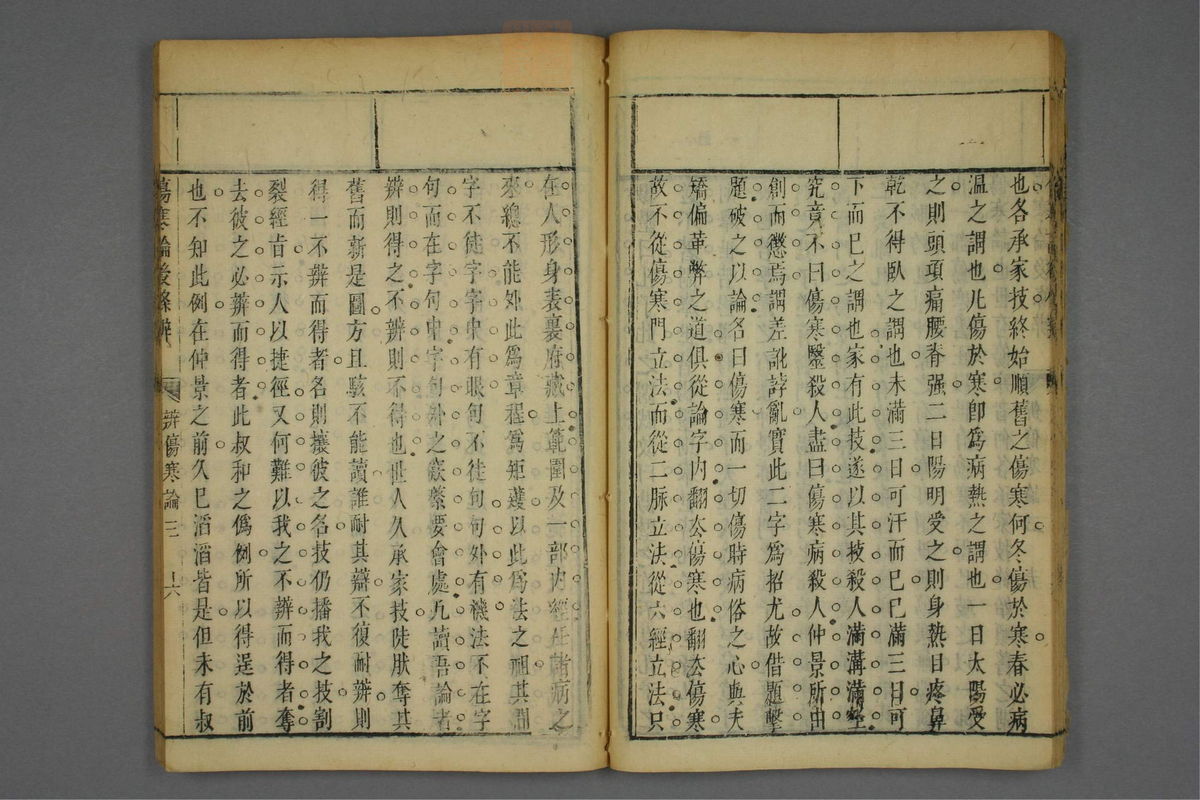 也各承家技終始順舊之傷寒何冬傷於寒春必病
溫之謂也凡傷於寒即爲病熱之謂也一日太陽受
之則頭項痛腰脊强二日陽明受之則身熱目疼鼻
乾不得臥之謂也未滿三日可汗而已已滿三日可
下而已之謂也家有此技遂以其技殺人滿溝滿壑
究竟不曰傷寒醫殺人盡曰傷寒病殺人仲景所由
創而懲焉謂差訛誖亂實此二字爲招尤故借題擊
題破之以論名曰傷寒而一切傷時病俗之心與夫
矯偏革弊之道俱從論字內翻去傷寒也翻去傷寒
故不從傷寒門立法而從二脉立法從六經立法只
在人形身表裏府藏上範圍及一部內經任諸病之
來總不能外此爲章程爲矩矱以此爲法之祖其間
字不徒字字中有眼句不徒句句外有機法不在字
句而在字句中字句外之窾綮要會處凡讀吾論者
辨則得之不辨則不得也世人久承家技陡肰奪其
舊而新是圖方且駭不能讀誰耐其辯不復耐辨則
得一不辨而得者名則攘彼之名技仍播我之技割
裂經旨示人以捷徑又何難以我之不辨而得者奪
去彼之必辨而得者此叔和之僞例所以得逞於前
也不知此例在仲景之前久已滔滔皆是但未有叔
傷寒論後條辨
辨傷寒論三
十六